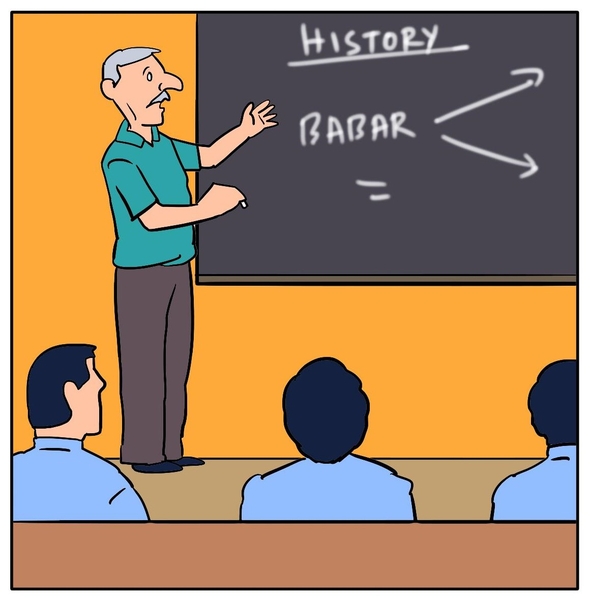 HISTORY
BABAR
=